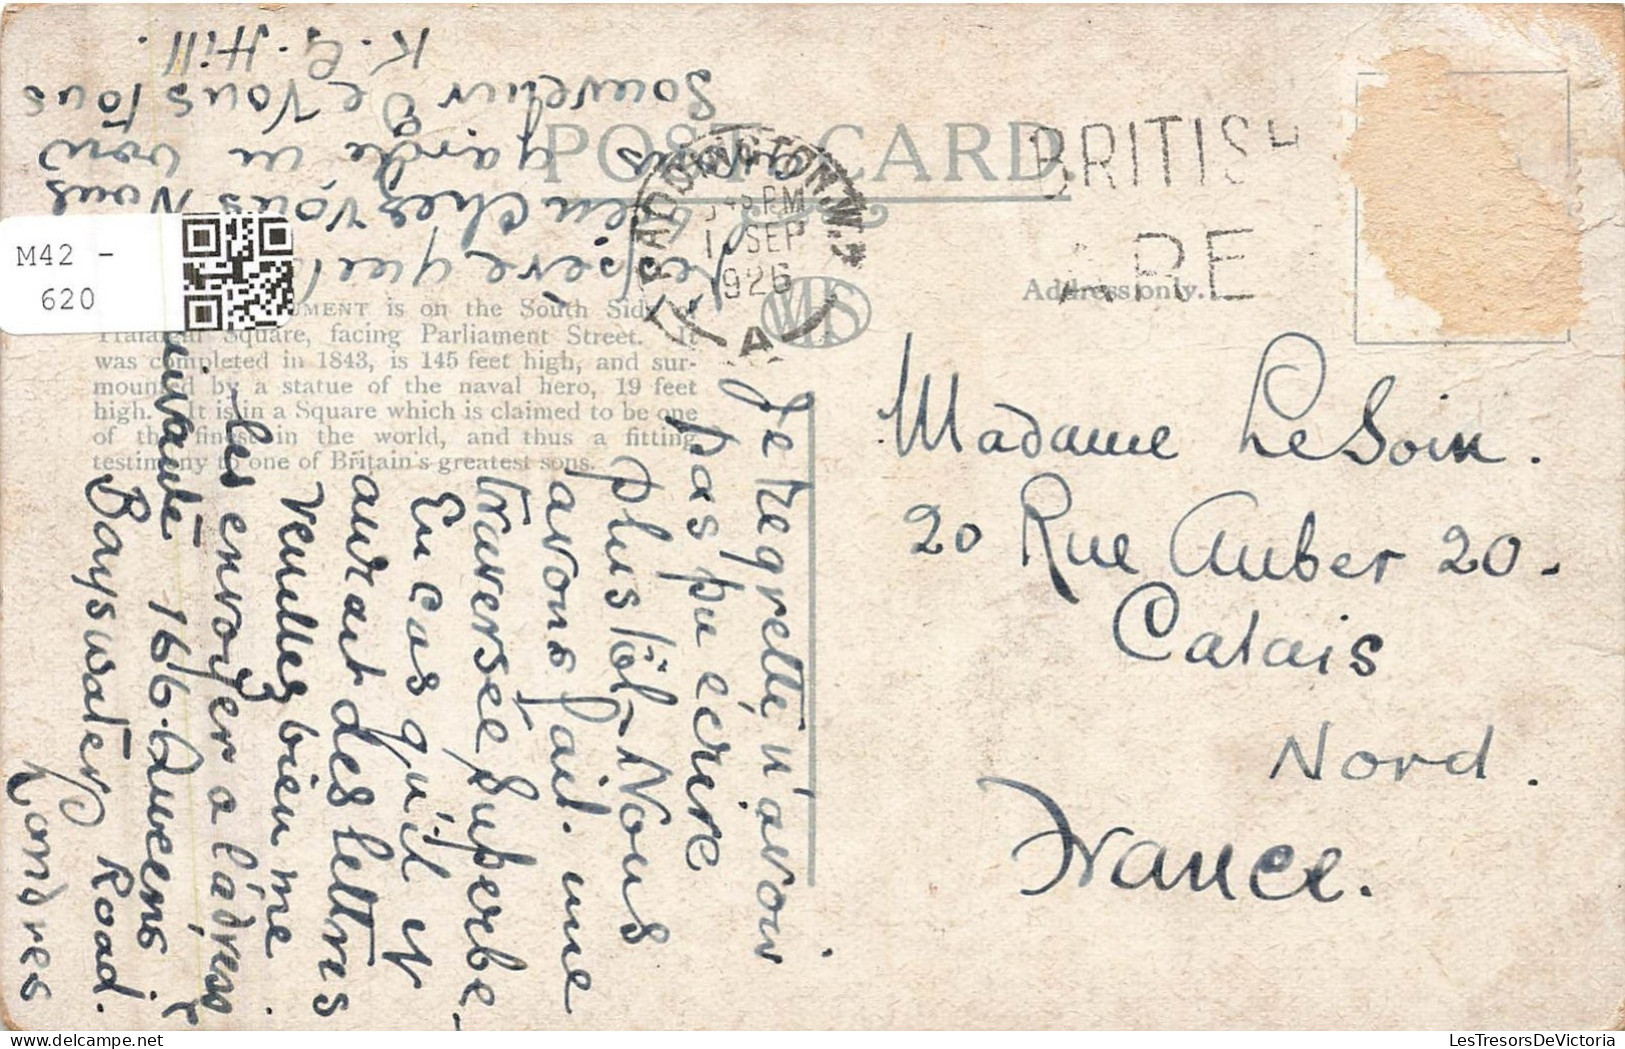 POST CARD
PADDINGTON.W.2
PM
SEP
1926
A
BRITISH
ARE
M42 -
620
UMENT is on the South Side
Trafalgar Square, facing Parliament Street. It
was completed in 1843, is 145 feet high, and sur-
mounted by a statue of the naval hero, 19 feet
high. It is in a Square which is claimed to be one
of the finest in the world, and thus a fitting
testimony to one of Britain's greatest sons.
Address only.
Madame Le Soin.
20 Rue Auber 20.
Calais
Nord.
France.
Je regrette n'avoir
pas pu écrire
plus tôt. Nous
avons fait une
traversée superbe.
En cas qu'il y
aurait des lettres
veuillez bien me
les envoyer a l'adresse
suivante 16/6. Queens
Bayswater Road.
Londres
J'espère que
bien chez vous Nous
avons gardé un bon
Souvenir de Vous Tous
K. G. Hill.
LesTresorsDeVictoria